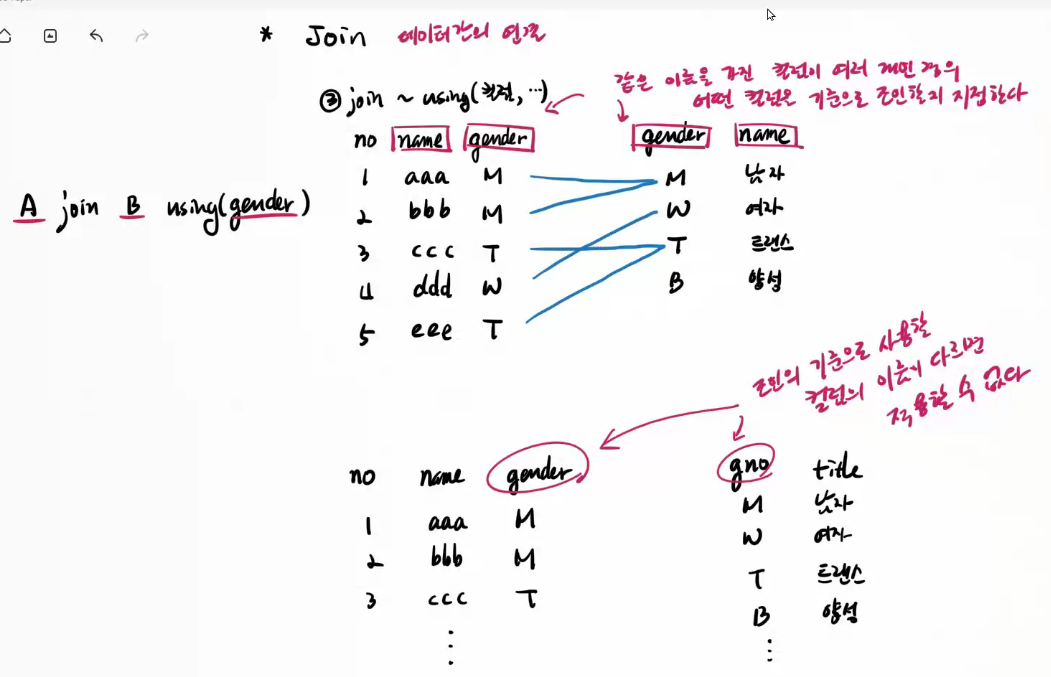 * Join 데이터간의 연결
③ join ~ using(컬럼, …)
같은 이름을 가진 컬럼이 여러 개면 경우
어떤 컬럼을 기준으로 조인할지 지정한다
no name gender
gender name
1 aaa M
M 남자
2 bbb M
W 여자
A join B using(gender)
3 ccc T
T 트랜스
4 ddd W
B 양성
5 eee T
조인의 기준으로 사용할
컬럼의 이름이 다르면
적용할 수 없다
no name gender
gno title
1 aaa M
M 남자
2 bbb M
W 여자
3 ccc T
T 트랜스
B 양성
⋮
⋮